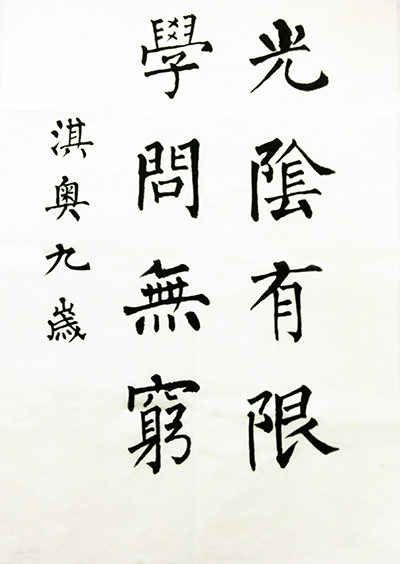 光陰有限
學問無窮
淇奧九歲